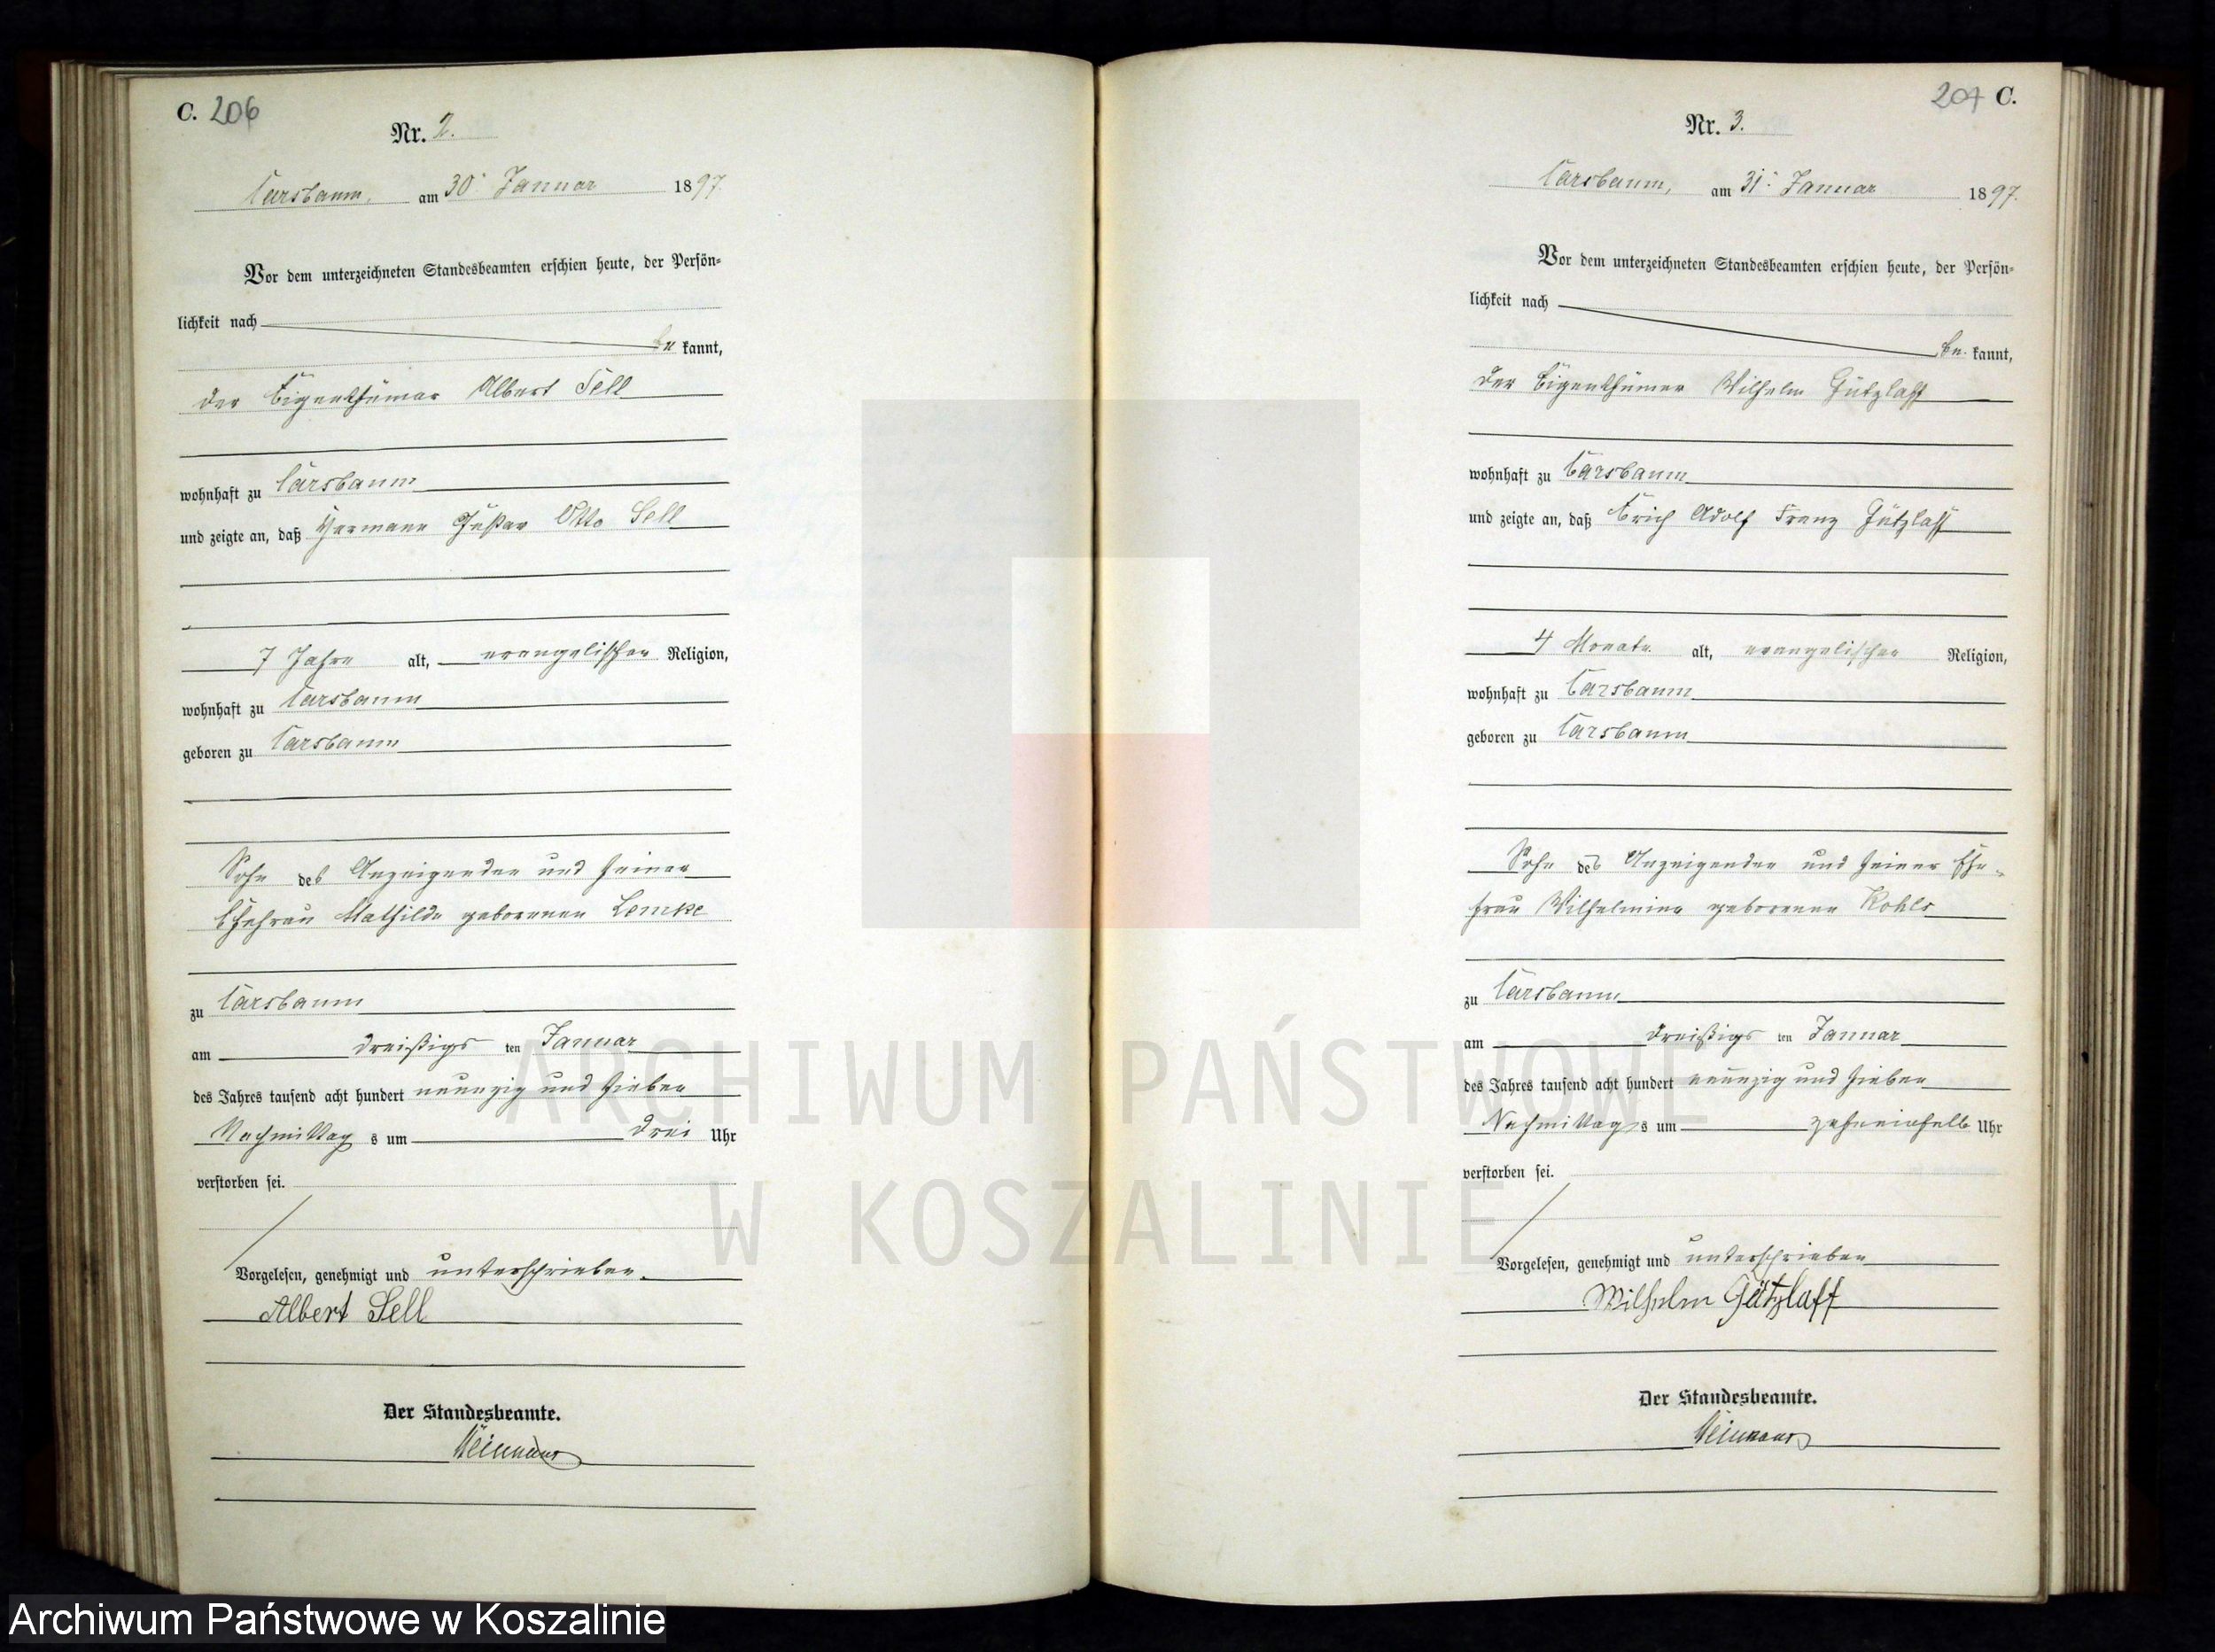 C. 206
Nr. 2.
Carsbaum, am 30. Januar 1897.
Vor dem unterzeichneten Standesbeamten erschien heute, der Persön-
lichkeit nach
be kannt,
der Eigenthümer Albert Sell
wohnhaft zu Carsbaum
und zeigte an, daß Hermann Gustav Otto Sell
7 Jahre alt, evangelischer Religion,
wohnhaft zu Carsbaum
geboren zu Carsbaum
Sohn des Anzeigenden und seiner
Ehefrau Mathilde geborenen Lemke
zu Carsbaum
am dreißigs ten Januar
des Jahres tausend acht hundert neunzig und sieben
Nachmittag s um drei Uhr
verstorben sei.
Vorgelesen, genehmigt und unterschrieben.
Albert Sell
Der Standesbeamte.
207 C.
Nr. 3.
Carsbaum, am 31. Januar 1897.
Vor dem unterzeichneten Standesbeamten erschien heute, der Persön-
lichkeit nach
be kannt,
der Eigenthümer Wilhelm Gützlaff
wohnhaft zu Carsbaum
und zeigte an, daß Erich Adolf Franz Gützlaff
4 Monate alt, evangelischer Religion,
wohnhaft zu Carsbaum
geboren zu Carsbaum
Sohn des Anzeigenden und seiner Ehe-
frau Wilhelmine geborenen Kohls
zu Carsbaum
am dreißigs ten Januar
des Jahres tausend acht hundert neunzig und sieben
Nachmittag s um Uhr
verstorben sei.
Vorgelesen, genehmigt und unterschrieben
Wilhelm Gützlaff
Der Standesbeamte.
ARCHIWUM PAŃSTWOWE
W KOSZALINIE
Archiwum Państwowe w Koszalinie